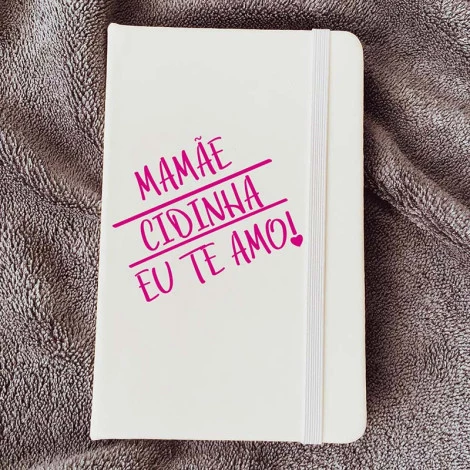 MAMÃE
CIDINHA
EU TE AMO!